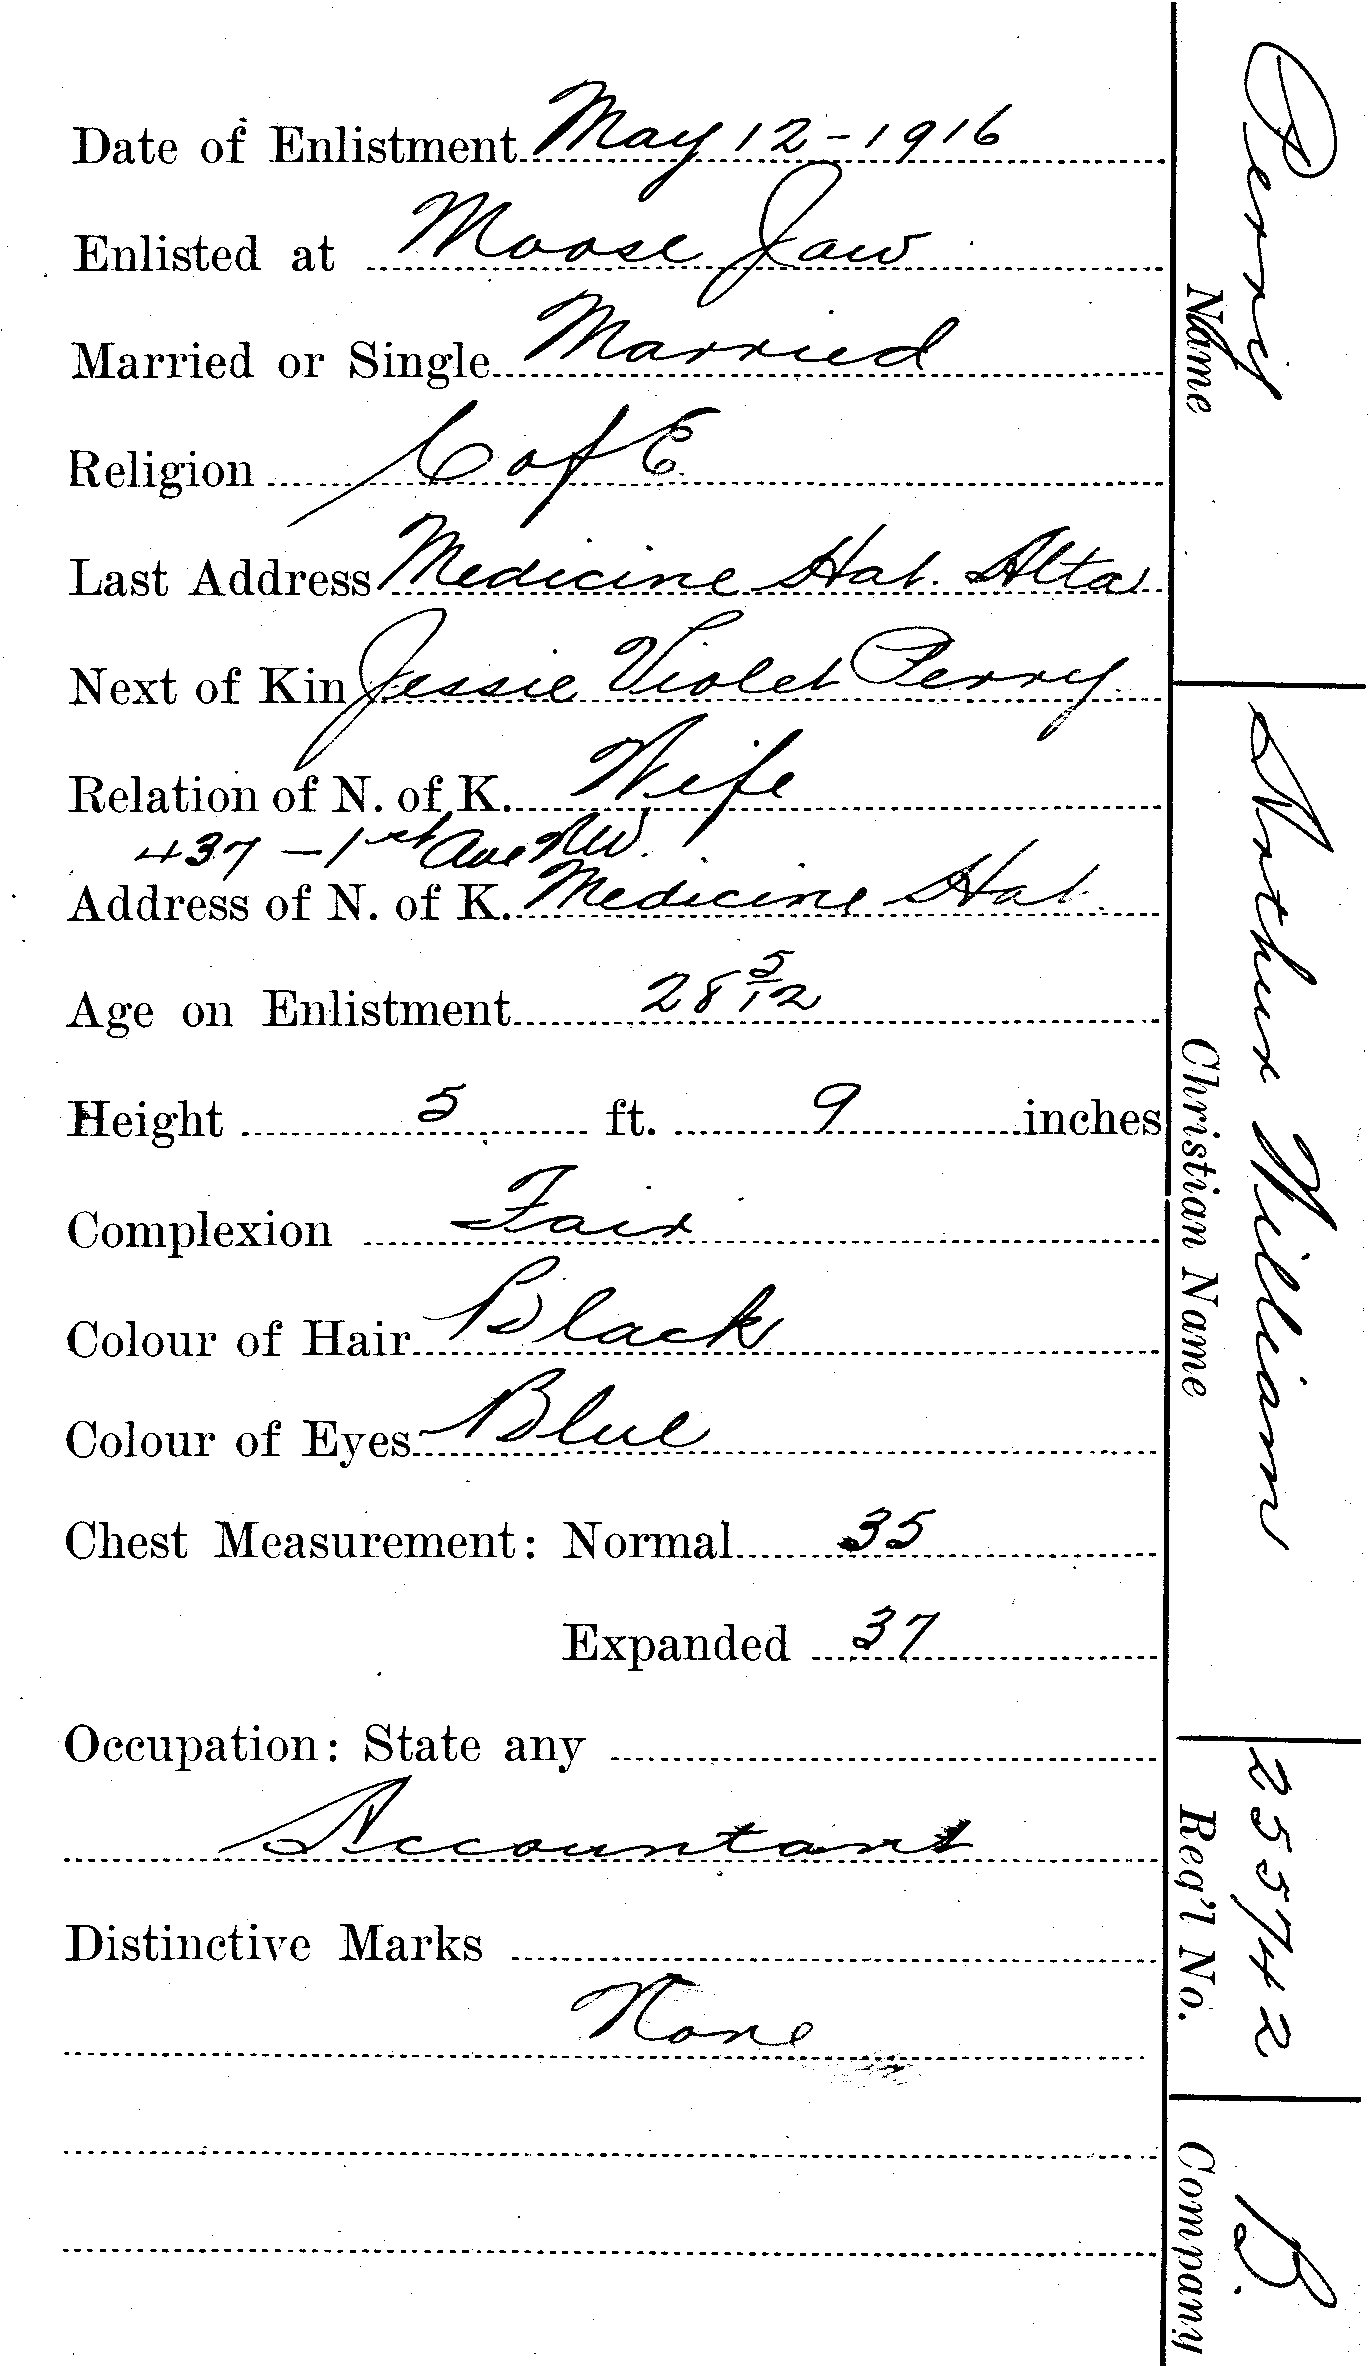 Date of Enlistment May 12 - 1916
Enlisted at Moose Jaw
Married or Single Married
Religion C of E
Last Address Medicine Hat. Alta
Next of Kin Jessie Violet Perry
Relation of N. of K. Wife
437 - 1st Ave NW.
Address of N. of K. Medicine Hat.
Age on Enlistment 28 5/12
Height 5 ft. 9 inches
Complexion Fair
Colour of Hair Black
Colour of Eyes Blue
Chest Measurement: Normal 35
Expanded 37
Occupation: State any
Accountant
Distinctive Marks
None
Perry
Name
Arthur William
Christian Name
255742
Req'l No.
B.
Company